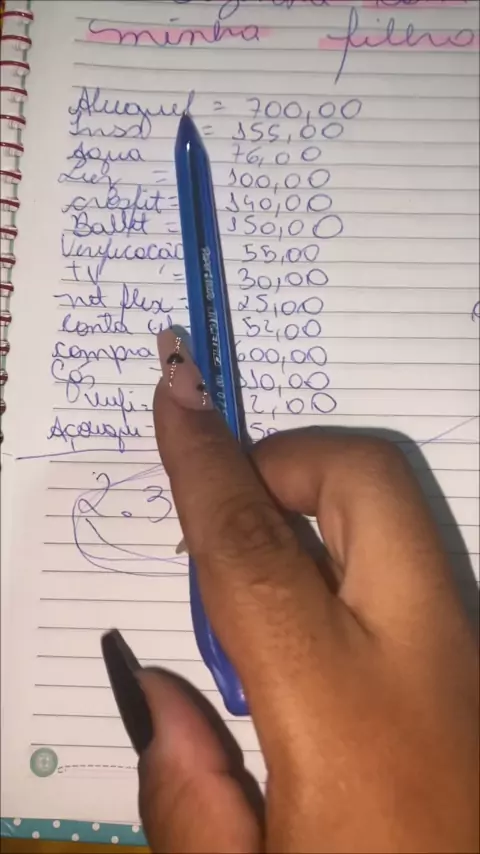 minha filha
Aluguel = 700,00
Inss = 155,00
Agua 76,00
Luz = 100,00
crosfit = 140,00
Ballet = 150,00
Verificacão 55,00
TV = 30,00
net flex = 25,00
conta 52,00
compra 600,00
Gás 110,00
= 2,00
Açougue = 50
2.3